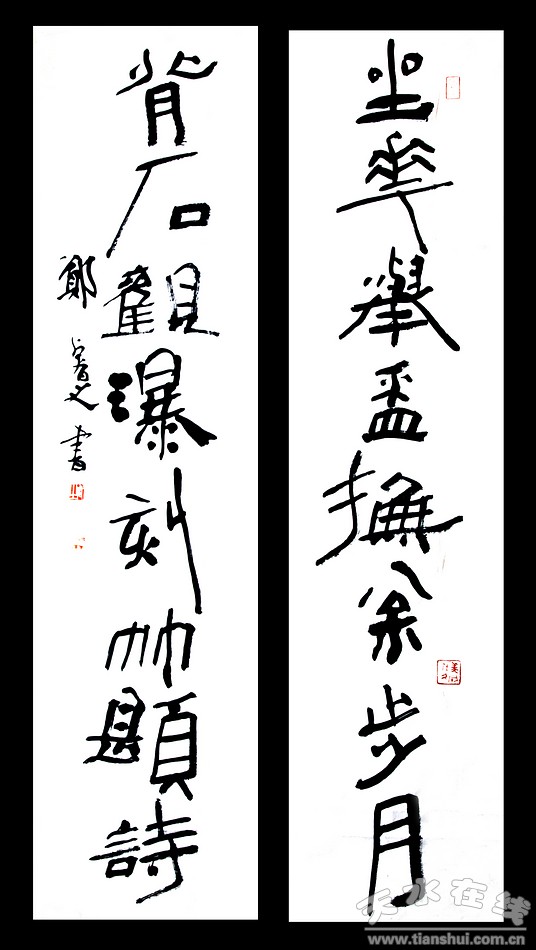 坐華舉盃撫枀步月
背石觀瀑刻竹題詩
鄭 文書
天水在线
www.tianshui.com.cn